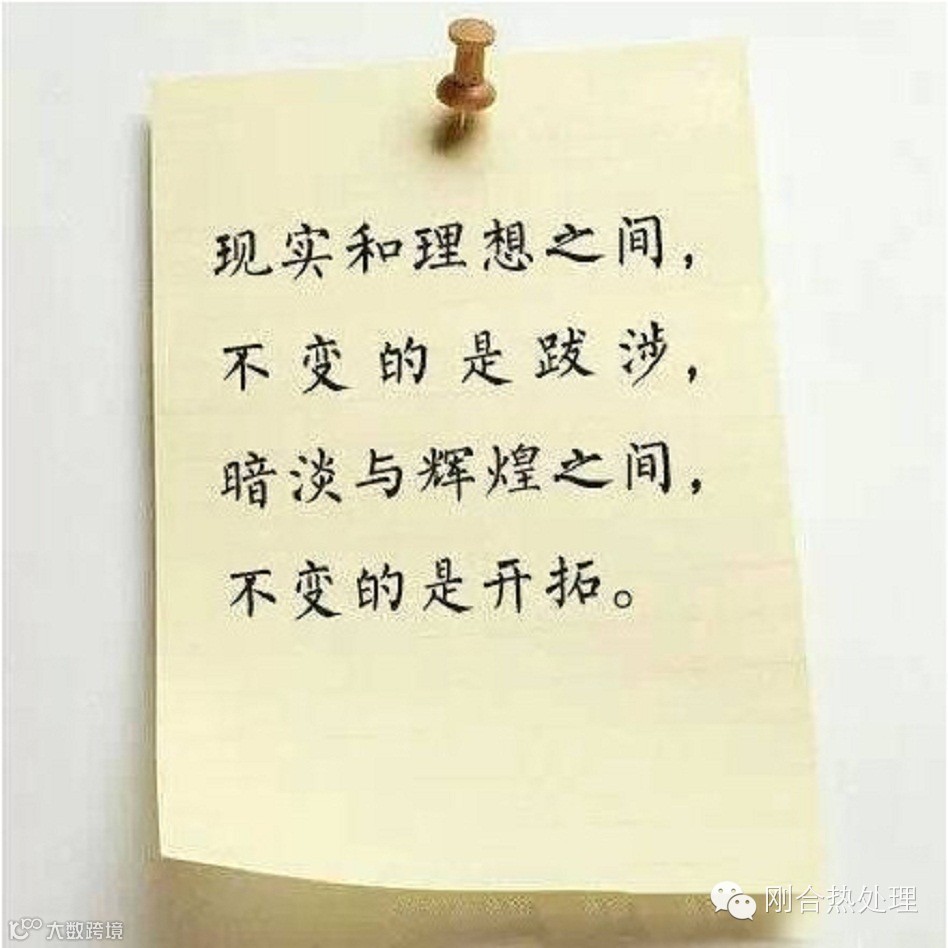 现实和理想之间，
不变的是跋涉，
暗淡与辉煌之间，
不变的是开拓。
刚台热处理
大数跨境